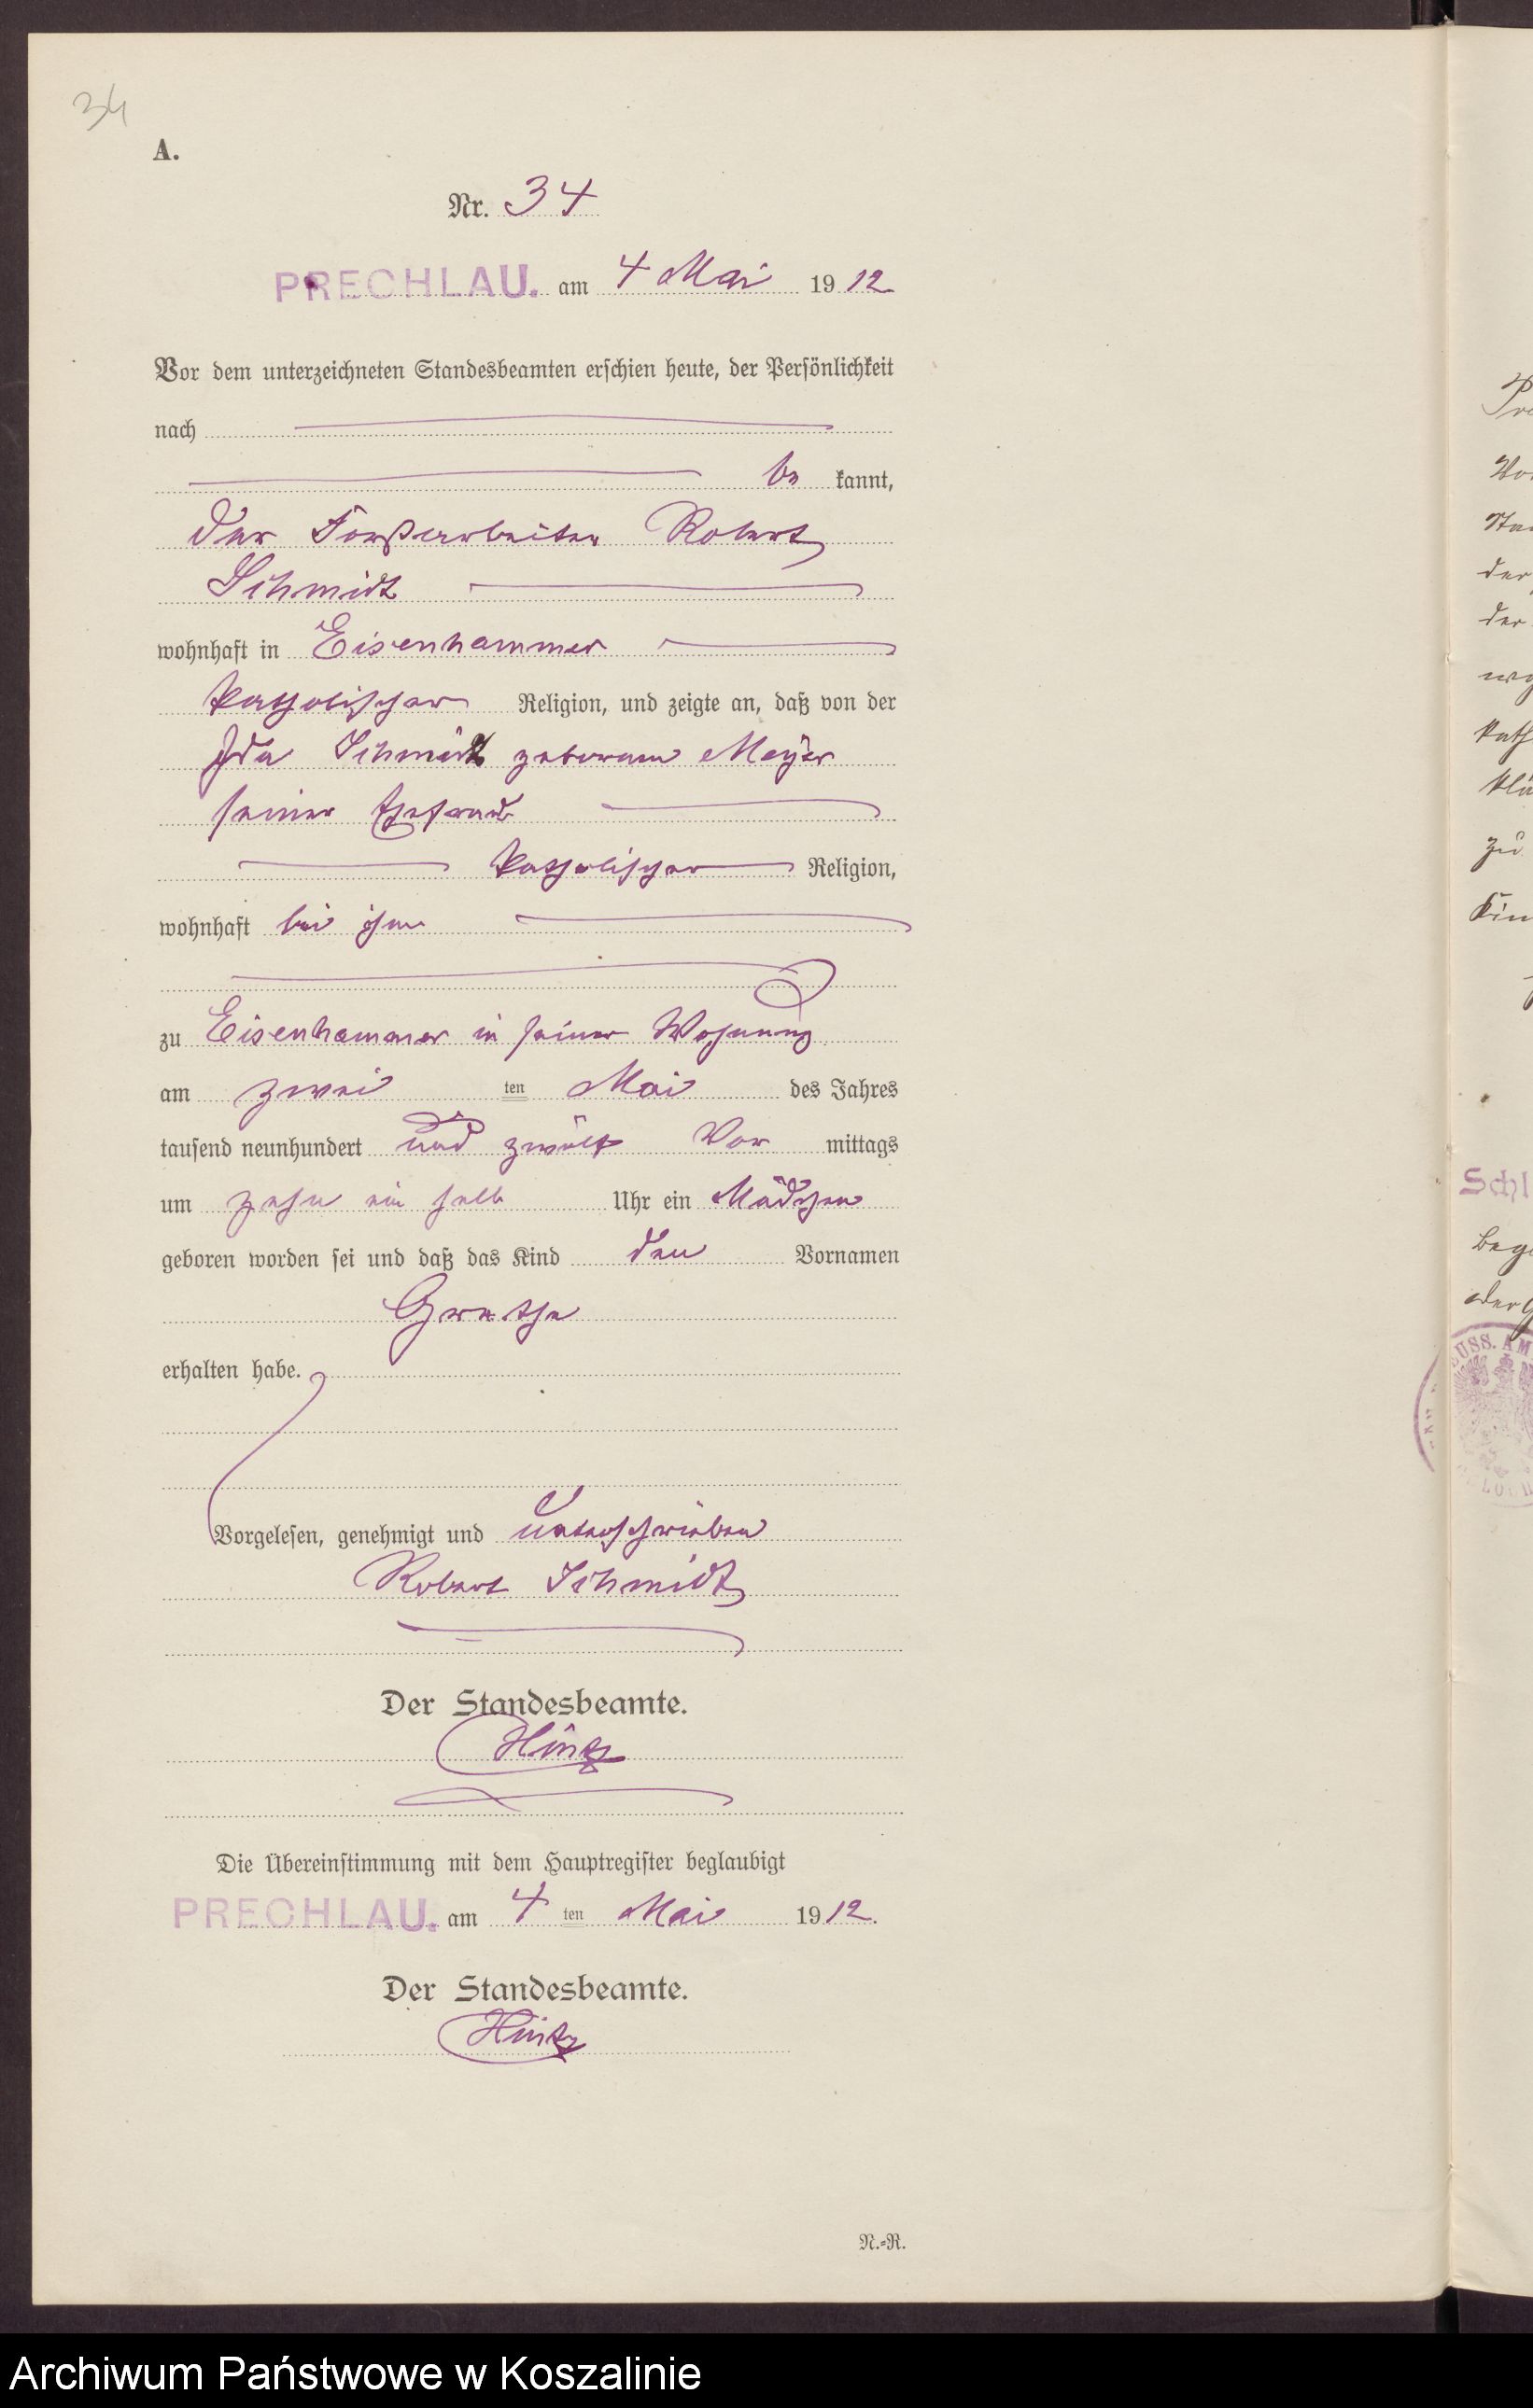 34
A.
Nr. 34
PRECHLAU. am 4 Mai 1912
Vor dem unterzeichneten Standesbeamten erschien heute, der Persönlichkeit
nach
be kannt,
der Forstarbeiter Robert
Schmidt
wohnhaft in Eisenhammer
katholischer Religion, und zeigte an, daß von der
Ida Schmidt geborenen Meyer
seiner Ehefrau
katholischer Religion,
wohnhaft bei ihm
zu Eisenhammer in seiner Wohnung
am zwei ten Mai des Jahres
tausend neunhundert und zwölf Vor mittags
um zehn ein halb Uhr ein Mädchen
geboren worden sei und daß das Kind den Vornamen
Grethe
erhalten habe.
Vorgelesen, genehmigt und unterschrieben
Robert Schmidt
Der Standesbeamte.
Hintz
Die Übereinstimmung mit dem Hauptregister beglaubigt
PRECHLAU. am 4 ten Mai 1912.
Der Standesbeamte.
Hintz
N.-R.
Schl
Archiwum Państwowe w Koszalinie